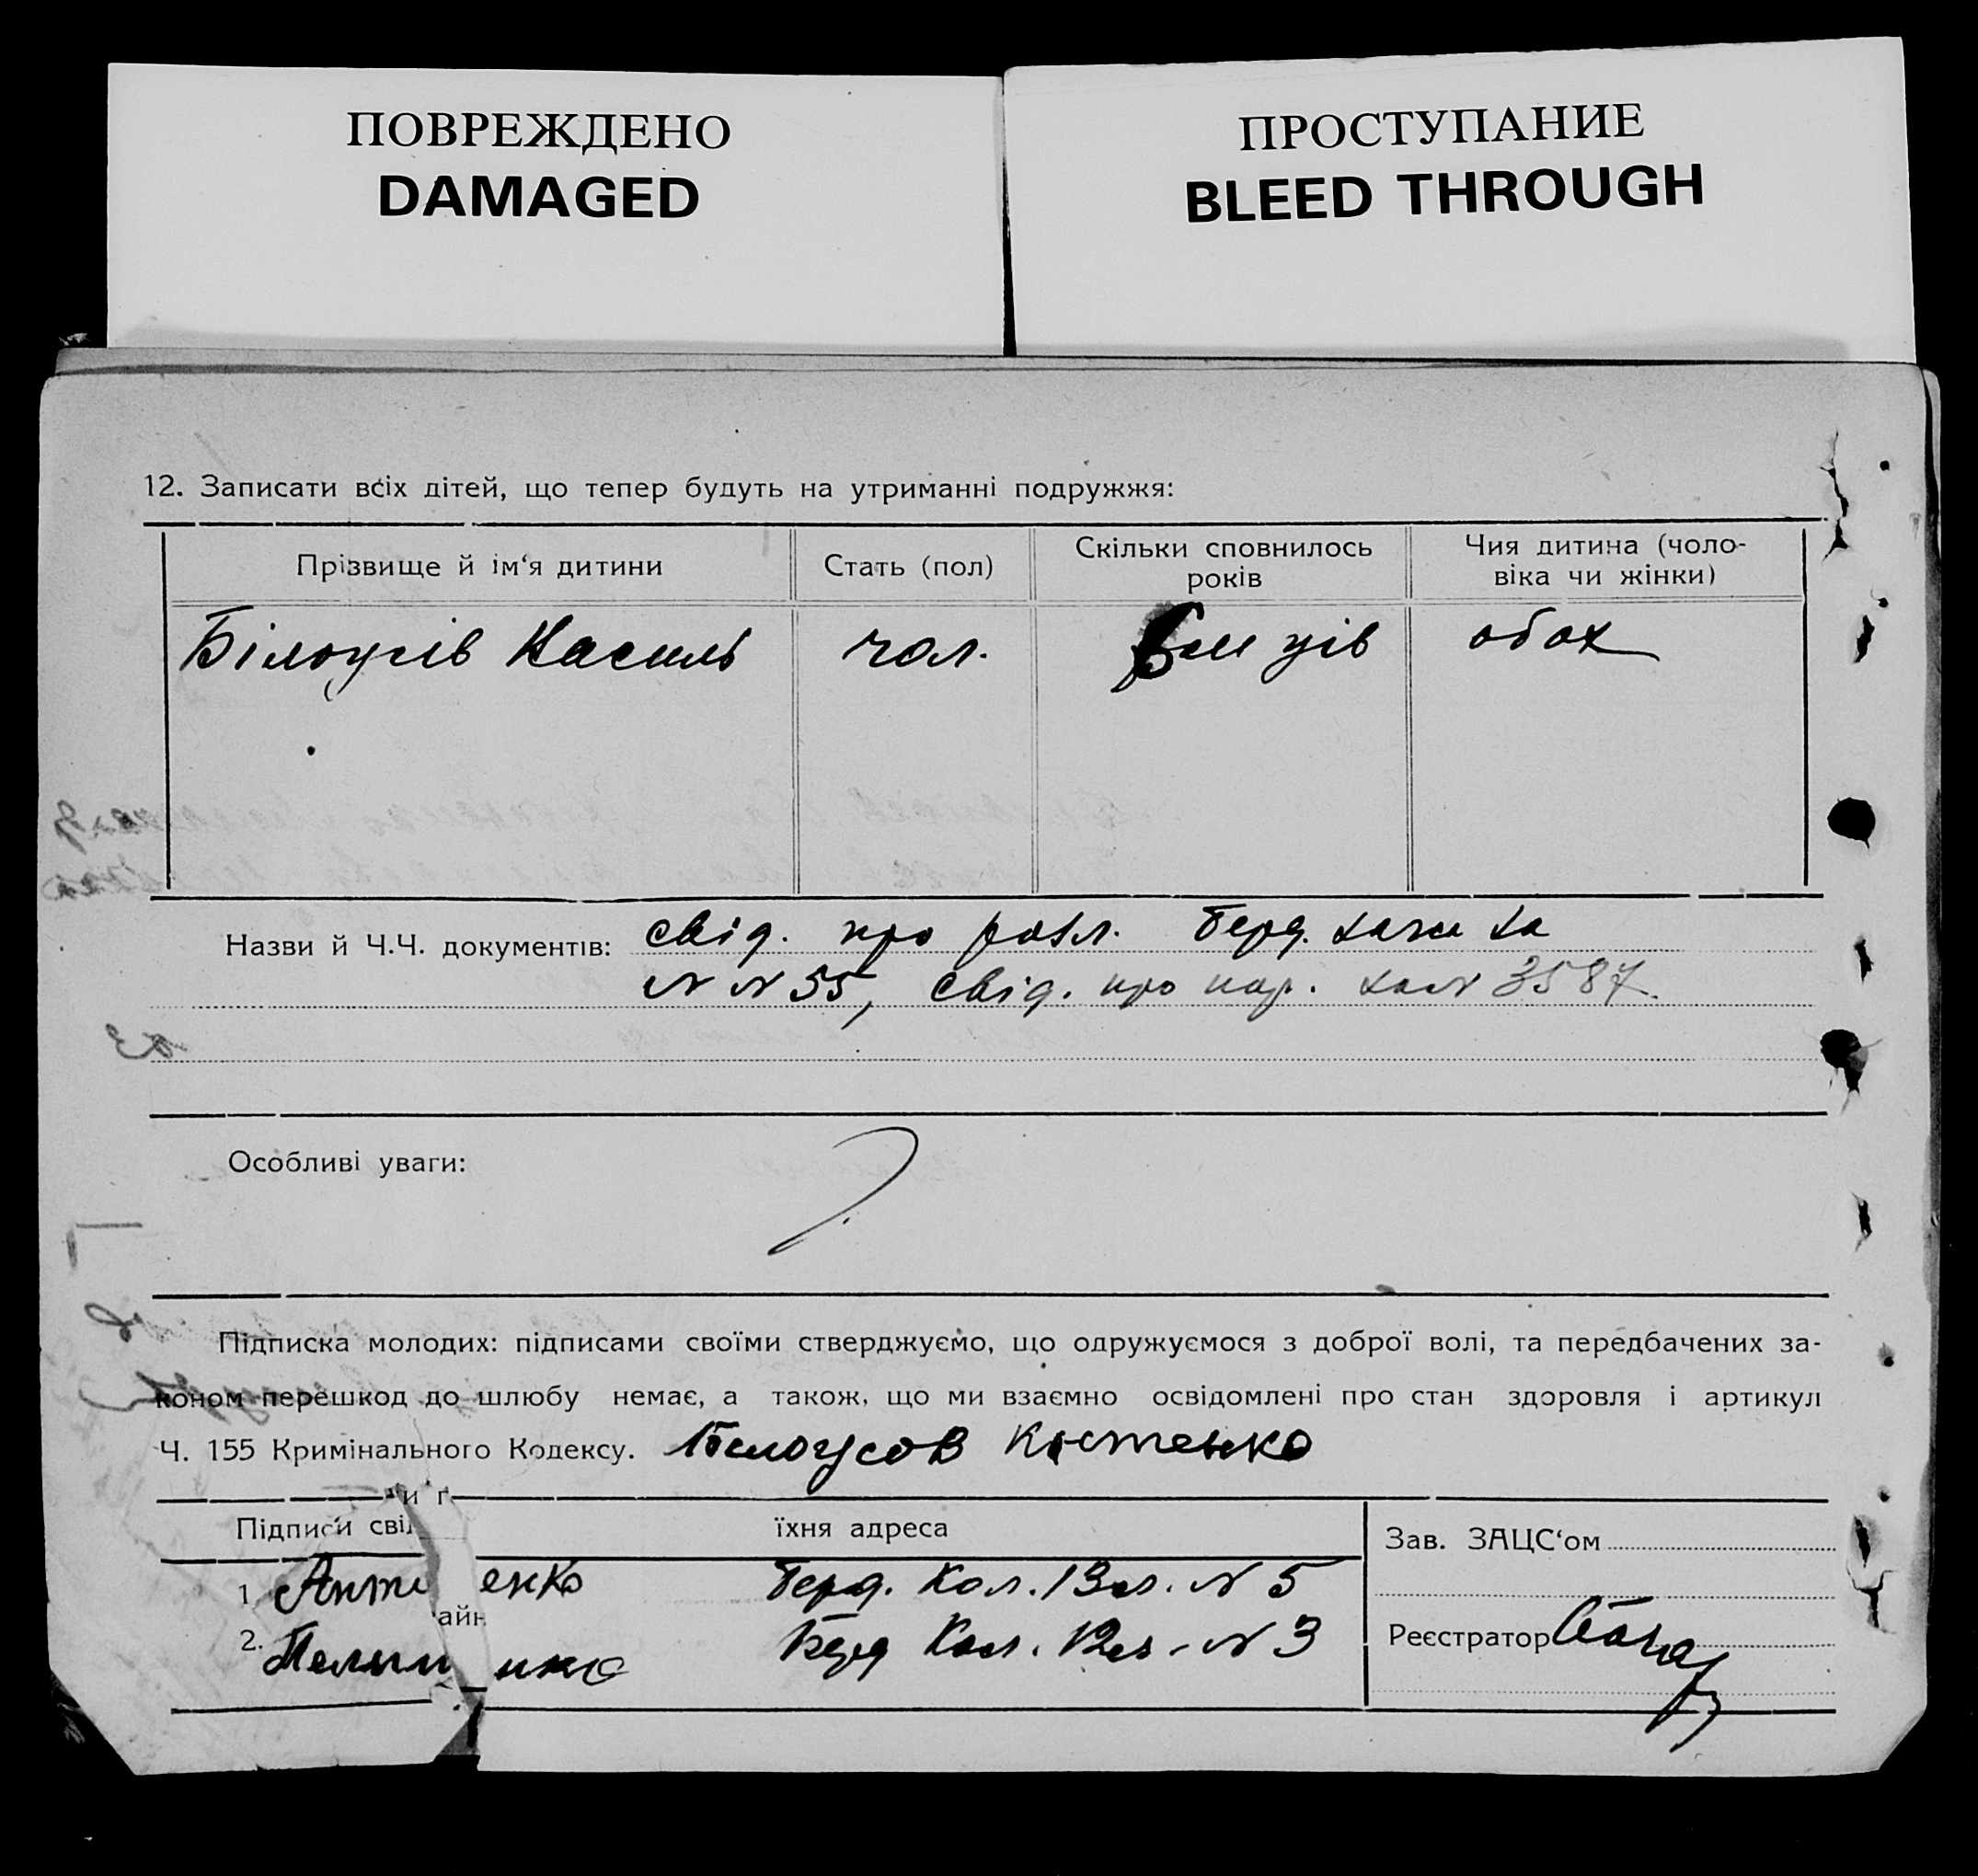 ПОВРЕЖДЕНО
DAMAGED
ПРОСТУПАНИЕ
BLEED THROUGH
12. Записати всіх дітей, що тепер будуть на утриманні подружжя:
Прізвище й ім‘я дитини
Стать (пол)
Скільки сповнилось
років
Чия дитина (чоло-
віка чи жінки)
Білоусів Василь
чол.
обох
Назви й Ч.Ч. документів: свід. про розл. Берд. за
N N 55, свід. про нар. за N 3587.
Особливі уваги:
Підписка молодих: підписами своїми стверджуємо, що одружуємося з доброї волі, та передбачених за-
коном перешкод до шлюбу немає, а також, що ми взаємно освідомлені про стан здоровля і артикул
Ч. 155 Кримінального Кодексу. Белоусов Костенко
Підписи сві
їхня адреса
Зав. ЗАЦС‘ом
1. Ант енко Берд. Кол. N 5
2. Берд Кол. N 3
Реєстратор